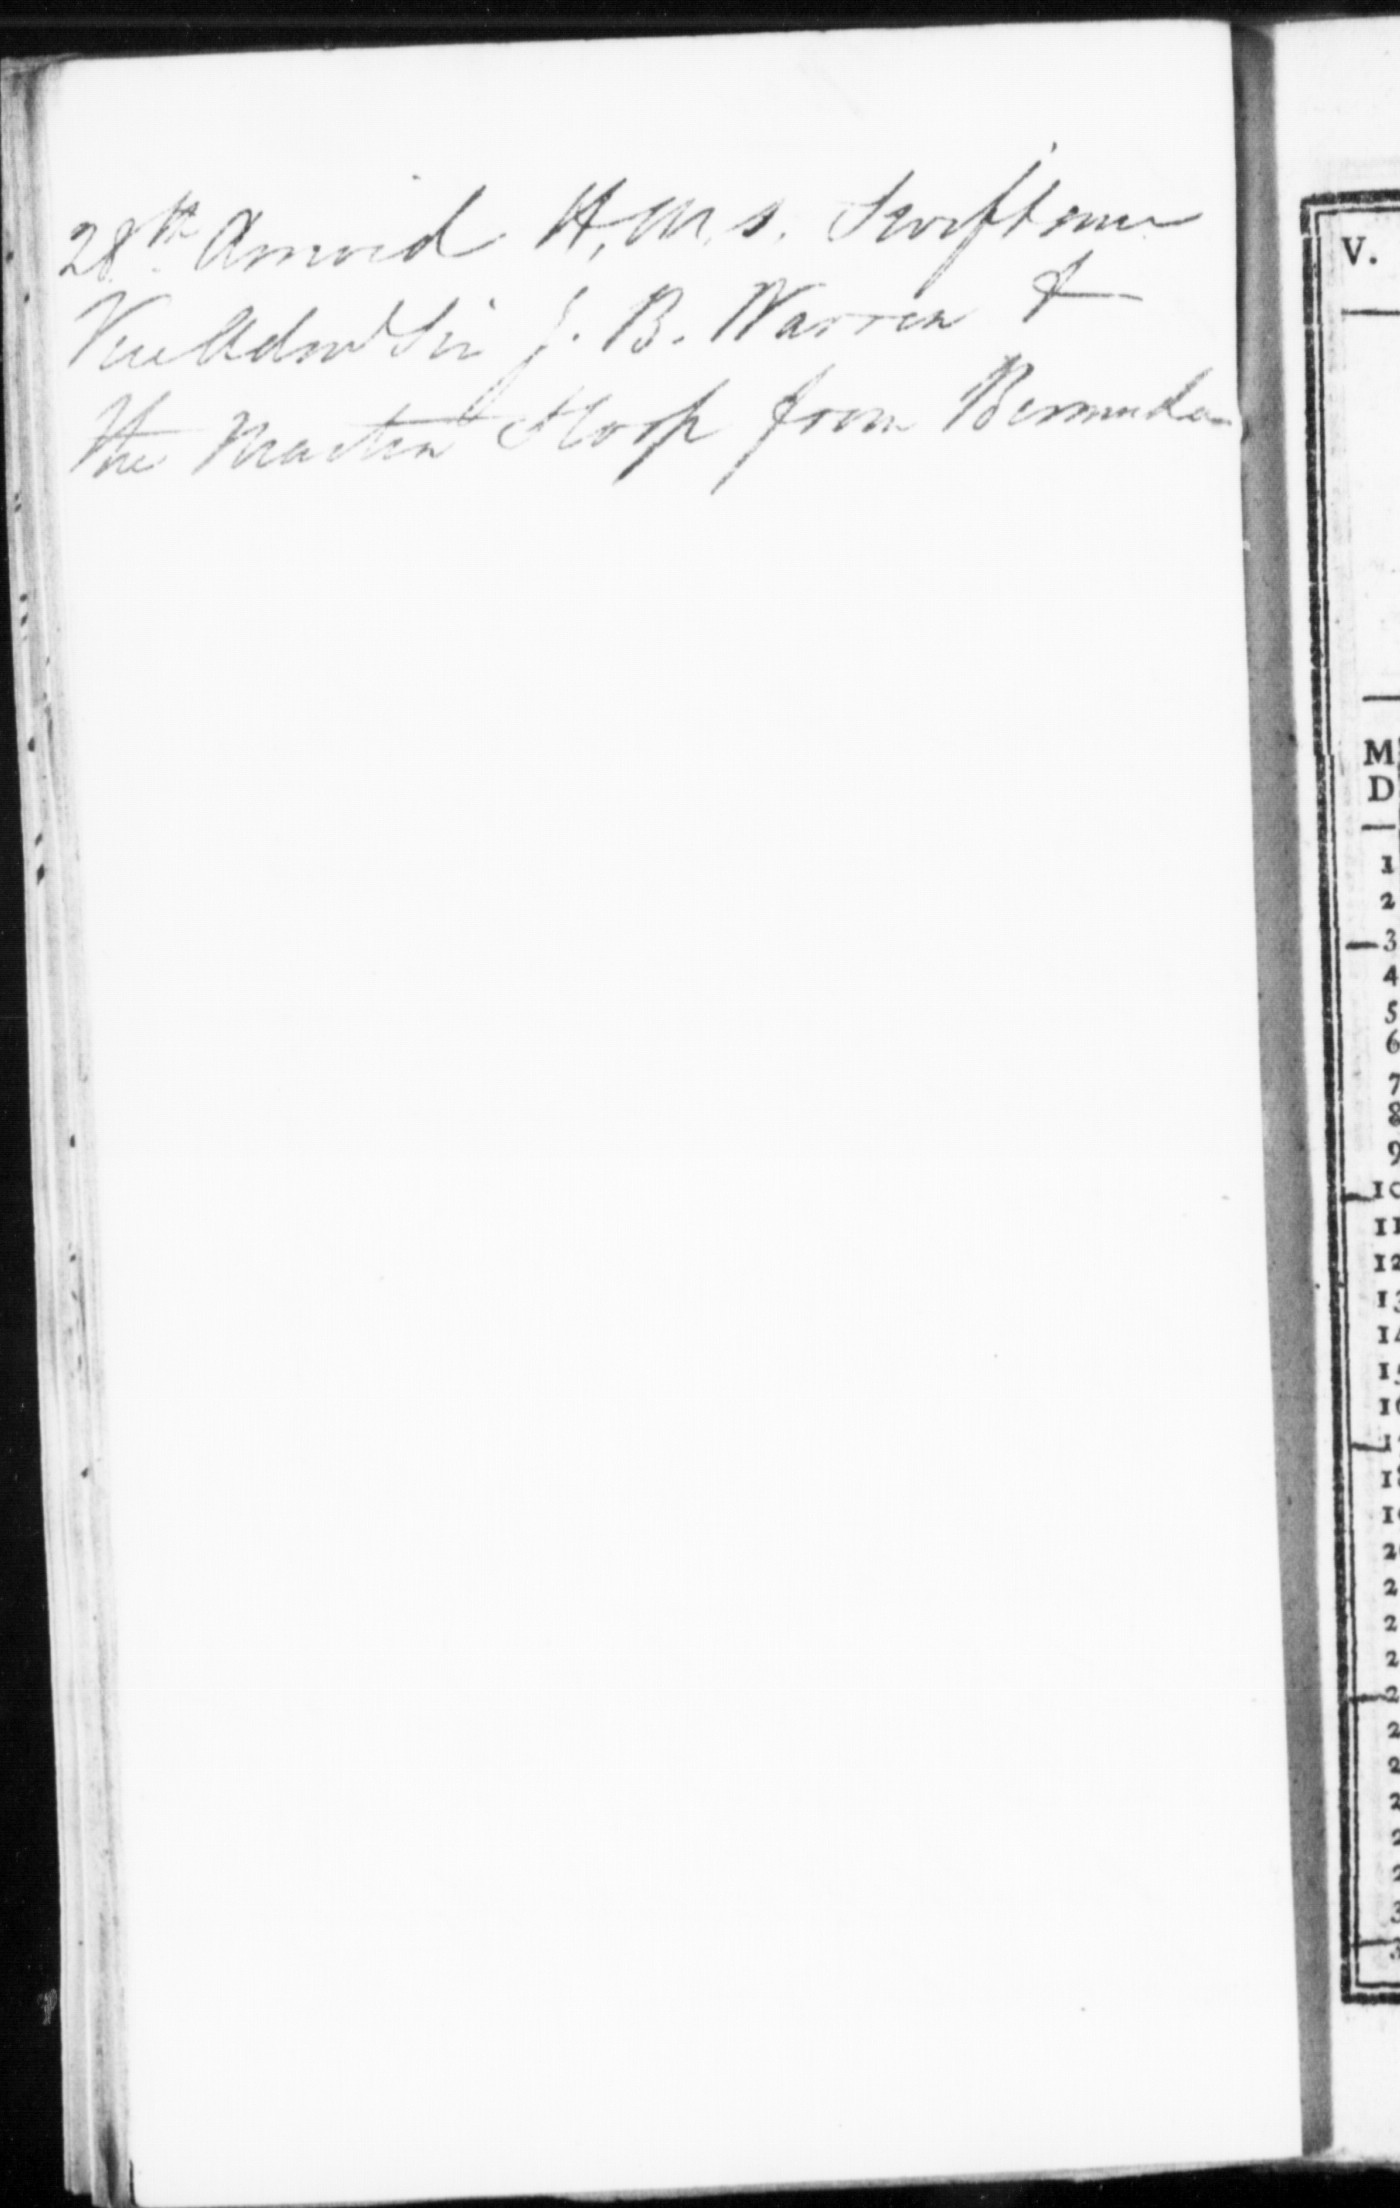 28th. Arrived H.M.S. Swiftsure
Vice Adml Sir J. B. Warren &
the Martin Sloop from Bermuda
V.
M
D
1
2
3
4
5
6
7
8
9
10
11
12
13
14
15